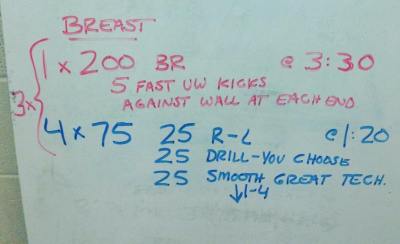 BREAST
3x { 1 x 200 BR @ 3:30
5 FAST UW KICKS
AGAINST WALL AT EACH END
4 x 75 25 R-L @ 1:20
25 DRILL-YOU CHOOSE
25 SMOOTH GREAT TECH.
↓1-4